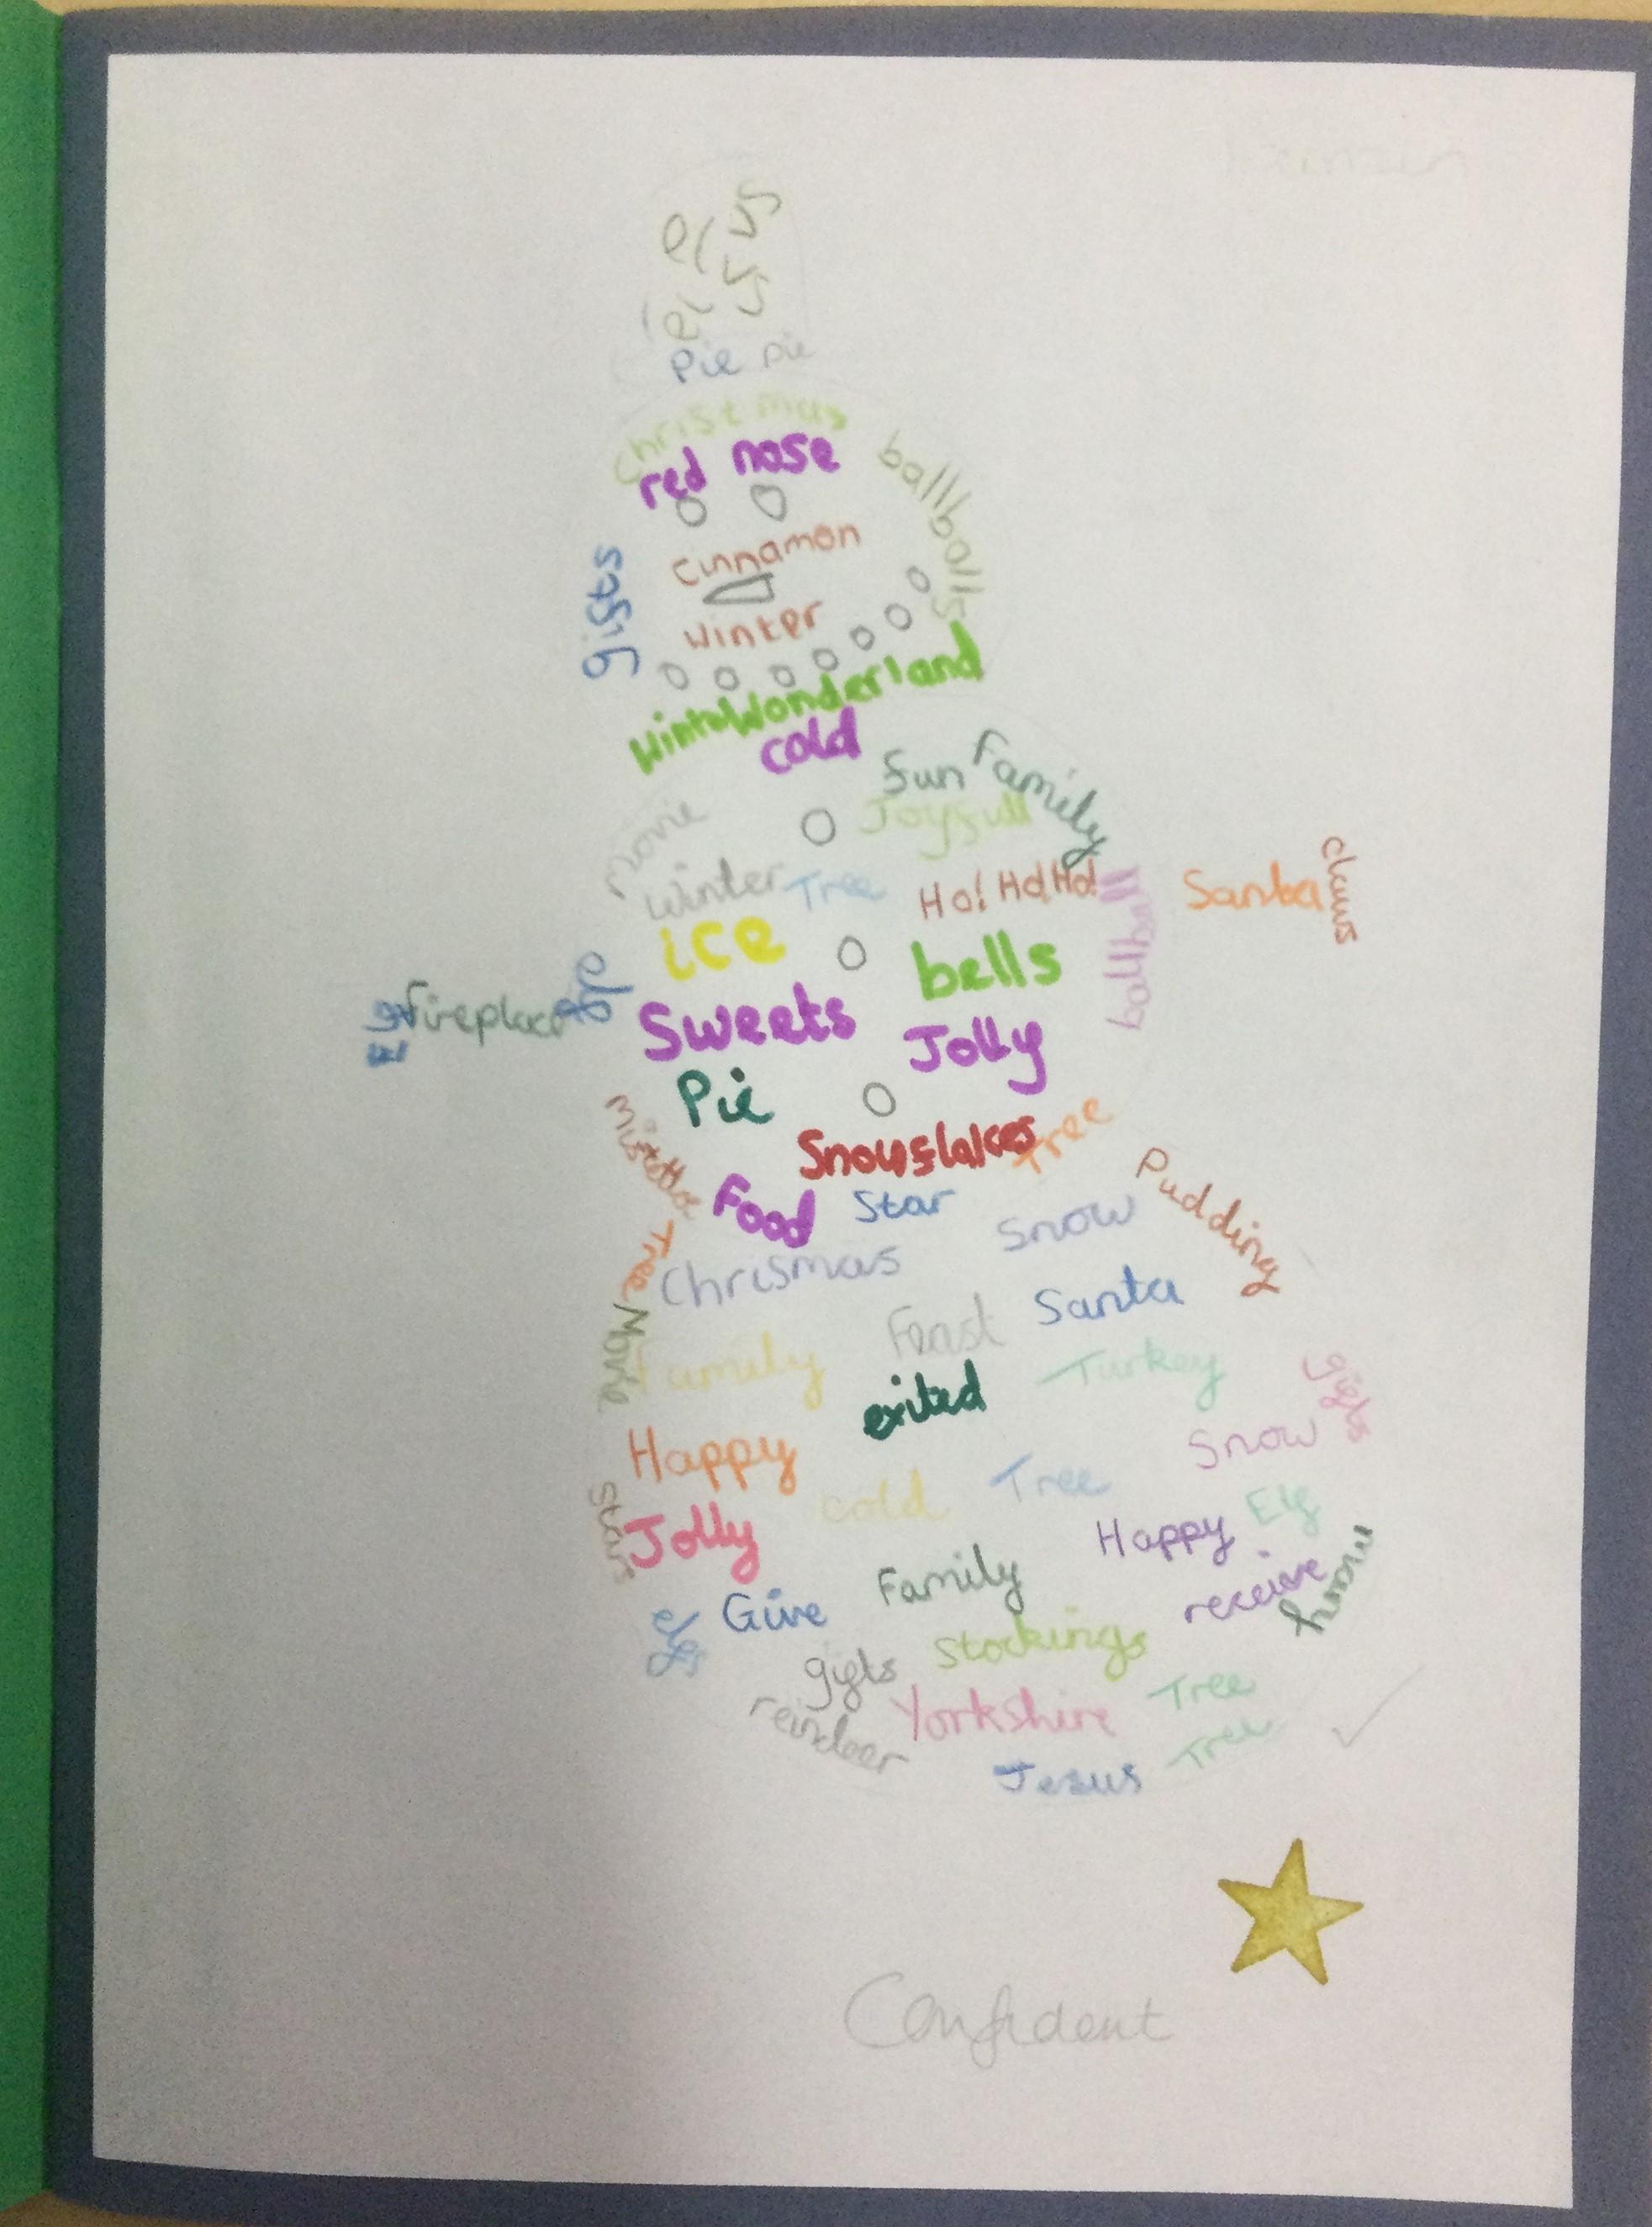 Pie Pie
Christmas
red nose
ballballs
Cinnamon
gifts
Winter
WinterWonderland
cold
Fun Family
movie
Joyfull
Winter Tree Ho! Ho! Ho!
Santa claws
ballball
ice
bells
Fireplace
Sweets
Jolly
Pie
Snowflakes Tree
Food Star
Pudding
Tree
Chrismas Snow
Feast Santa
Movie
Family
exited Turkey
gifts
Happy
Snow
cold Tree
stars
Jolly
Happy Elf
Family
receive
many
Give
Stockings
gifts
reindeer
Yorkshire Tree
Jesus Tree
Confident